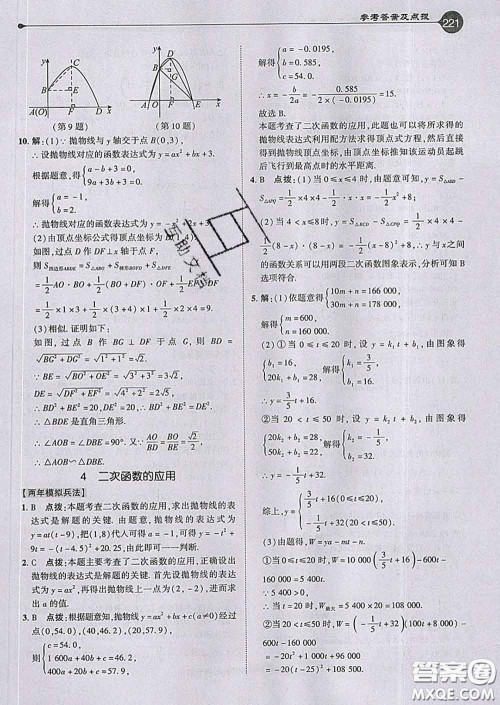 参考答案及点拨 221
(第9题) (第10题)
10. 解:(1)∵抛物线与y轴交于点B(0,3),
∴设抛物线对应的函数表达式为y=ax²+bx+3.
根据题意,得{a-b+3=0, 9a+3b+3=0,
解得{a=-1, b=2.
∴抛物线对应的函数表达式为y=-x²+2x+3.
(2)由顶点坐标公式得顶点坐标为D(1,4).
如图,过点D作DF⊥x轴于点F,
则S四边形ABDE=S△ABO+S梯形BOFD+S△DFE
=1/2AO·BO+1/2(BO+DF)·OF+1/2EF·DF
=1/2×1×3+1/2×(3+4)×1+1/2×2×4=9.
(3)相似.证明如下:
如图,过点B作BG⊥DF于点G,则BD=
√(BG²+DG²)=√(1²+1²)=√2.
∵BE=√(BO²+OE²)=√(3²+3²)=3√2,
DE=√(DF²+EF²)=√(4²+2²)=2√5,
∴BD²+BE²=20,DE²=20,∴BD²+BE²=DE².
∴△BDE是直角三角形.
∴∠AOB=∠DBE=90°.又∵AO/BD=BO/BE=√2/2,
∴△AOB∽△DBE.
4 二次函数的应用
【两年模拟兵法】
1. B 点拨:本题考查二次函数的应用,求出抛物线的表
达式是解题的关键.由题意,得抛物线的表达式为y=
at(t-9),把(1,8)代入可得a=-1,可得y=-t²+
9t=-(t-4.5)²+20.25,由此即可一一判断.
2. C 点拨:本题主要考查了二次函数的应用,正确设出
抛物线的表达式是解题的关键.首先设抛物线的表达
式为y=ax²,再得出抛物线上一点为(2,-2),进而求
出a的值.
3. B 点拨:根据题意知,抛物线y=ax²+bx+c(a≠0)经过
点(0,54.0),(40,46.2),(20,57.9),
则{c=54.0, 1 600a+40b+c=46.2, 400a+20b+c=57.9,
解得{a=-0.0195, b=0.585, c=54.0.
∴x=-b/2a=-0.585/(2×(-0.0195))=15.
故选B.
本题考查了二次函数的应用,此题也可以将所求得的
抛物线表达式利用配方法求得顶点式方程,然后直接
得到抛物线顶点坐标,由顶点坐标推知该运动员起跳
后飞行到最高点时的水平距离.
4. B 点拨:(1)当0≤x≤4时,由题意知,y=S△ABD-
S△APQ=1/2×4×4-1/2·x·x=-1/2x²+8.
(2)当4<x≤8时,y=S△BCD-S△CPQ=1/2×4×4-
1/2(8-x)·(8-x)=-1/2(8-x)²+8.∴y与x之间
的函数关系可以用两段二次函数图象表示,分析可知B
选项符合.
5. 解:(1)依题意得{10m+n=166 000, 30m+n=178 000,
解得{m=600, n=160 000.
(2)①当0≤t≤20时,设y=k₁t+b₁,由图象得
{b₁=16, 20k₁+b₁=28, 解得{k₁=3/5, b₁=16,
∴y=3/5t+16;
②当20<t≤50时,设y=k₂t+b₂,由图象得
{20k₂+b₂=28, 50k₂+b₂=22, 解得{k₂=-1/5, b₂=32,
∴y=-1/5t+32,
综上,y={3/5t+16(0≤t≤20), -1/5t+32(20<t≤50).
(3)由题意得,W=ya-mt-n.
①当0≤t≤20时,W=10 000(3/5t+16)-600t-
160 000=5 400t,
∵5 400>0,∴当t=20时,W最大=5 400×20=108 000.
②当20<t≤50时,W=(-1/5t+32)(100t+8 000)-
600t-160 000
=-20t²+1 000t+96 000
=-20(t-25)²+108 500.
互助文档
答案圈
MXQE.COM